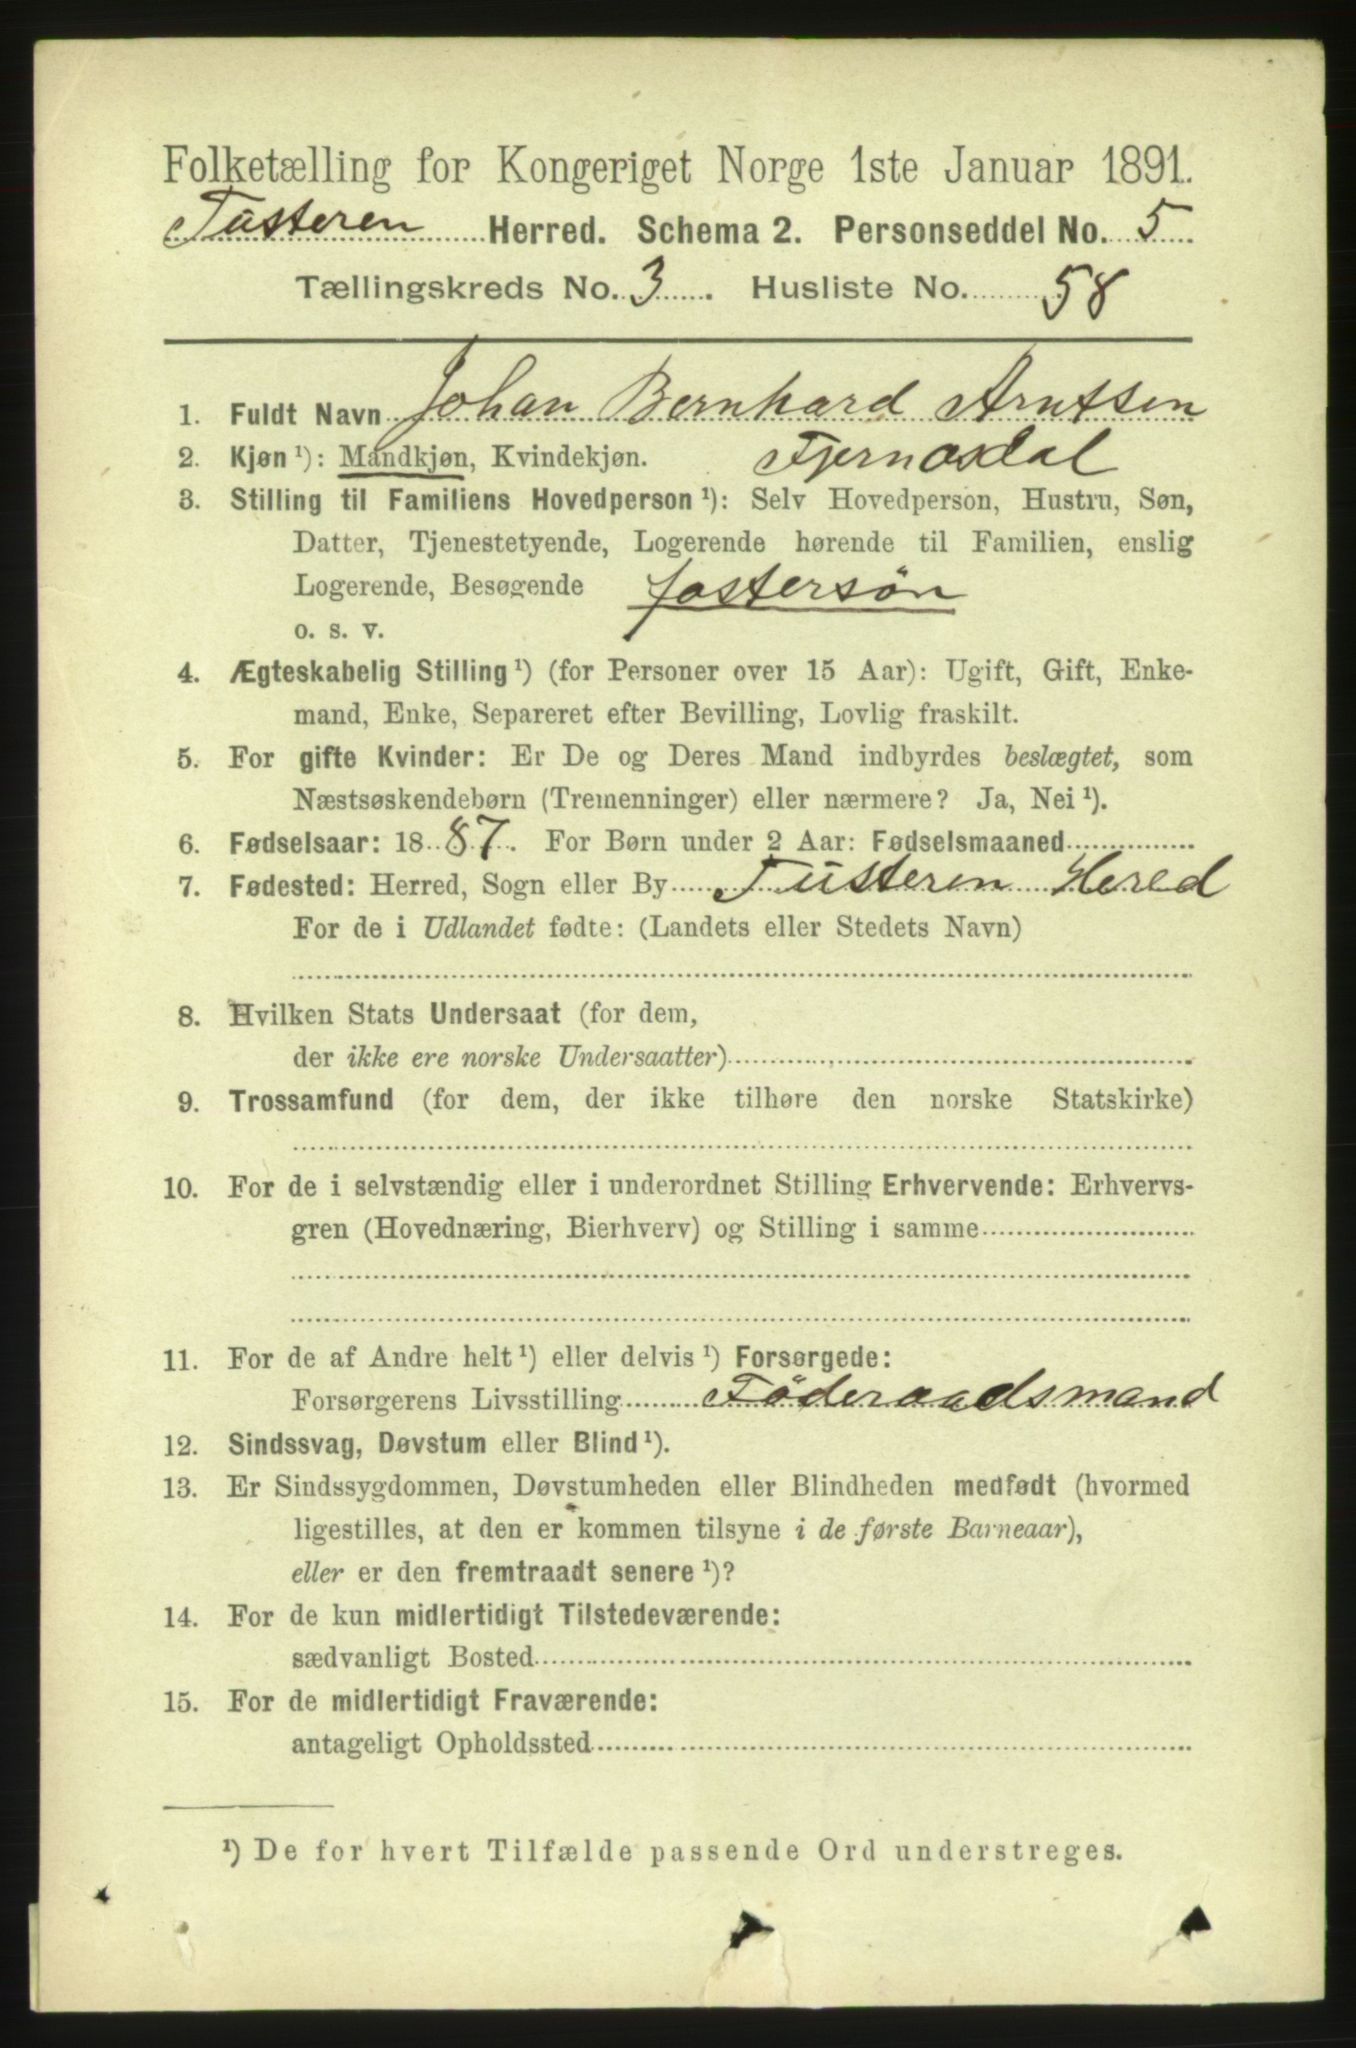 Folketælling for Kongeriget Norge 1ste Januar 1891.
Tusteren Herred. Schema 2. Personseddel No. 5
Tællingskreds No. 3. Husliste No. 58
1. Fuldt Navn Johan Bernhard Arntsen
2. Kjøn ¹): Mandkjøn, Kvindekjøn. Fjernasdal
3. Stilling til Familiens Hovedperson ¹): Selv Hovedperson, Hustru, Søn,
Datter, Tjenestetyende, Logerende hørende til Familien, enslig
Logerende, Besøgende fostersøn
o. s. v.
4. Ægteskabelig Stilling ¹) (for Personer over 15 Aar): Ugift, Gift, Enke-
mand, Enke, Separeret efter Bevilling, Lovlig fraskilt.
5. For gifte Kvinder: Er De og Deres Mand indbyrdes beslægtet, som
Næstsøskendebørn (Tremenninger) eller nærmere? Ja, Nei ¹).
6. Fødselsaar: 1887. For Børn under 2 Aar: Fødselsmaaned
7. Fødested: Herred, Sogn eller By Tusteren Hered
For de i Udlandet fødte: (Landets eller Stedets Navn)
8. Hvilken Stats Undersaat (for dem,
der ikke ere norske Undersaatter)
9. Trossamfund (for dem, der ikke tilhøre den norske Statskirke)
10. For de i selvstændig eller i underordnet Stilling Erhvervende: Erhvervs-
gren (Hovednæring, Bierhverv) og Stilling i samme
11. For de af Andre helt ¹) eller delvis ¹) Forsørgede:
Forsørgerens Livsstilling Föderaadsmand
12. Sindssvag, Døvstum eller Blind ¹).
13. Er Sindssygdommen, Døvstumheden eller Blindheden medfødt (hvormed
ligestilles, at den er kommen tilsyne i de første Barneaar),
eller er den fremtraadt senere ¹)?
14. For de kun midlertidigt Tilstedeværende:
sædvanligt Bosted
15. For de midlertidigt Fraværende:
antageligt Opholdssted
¹) De for hvert Tilfælde passende Ord understreges.